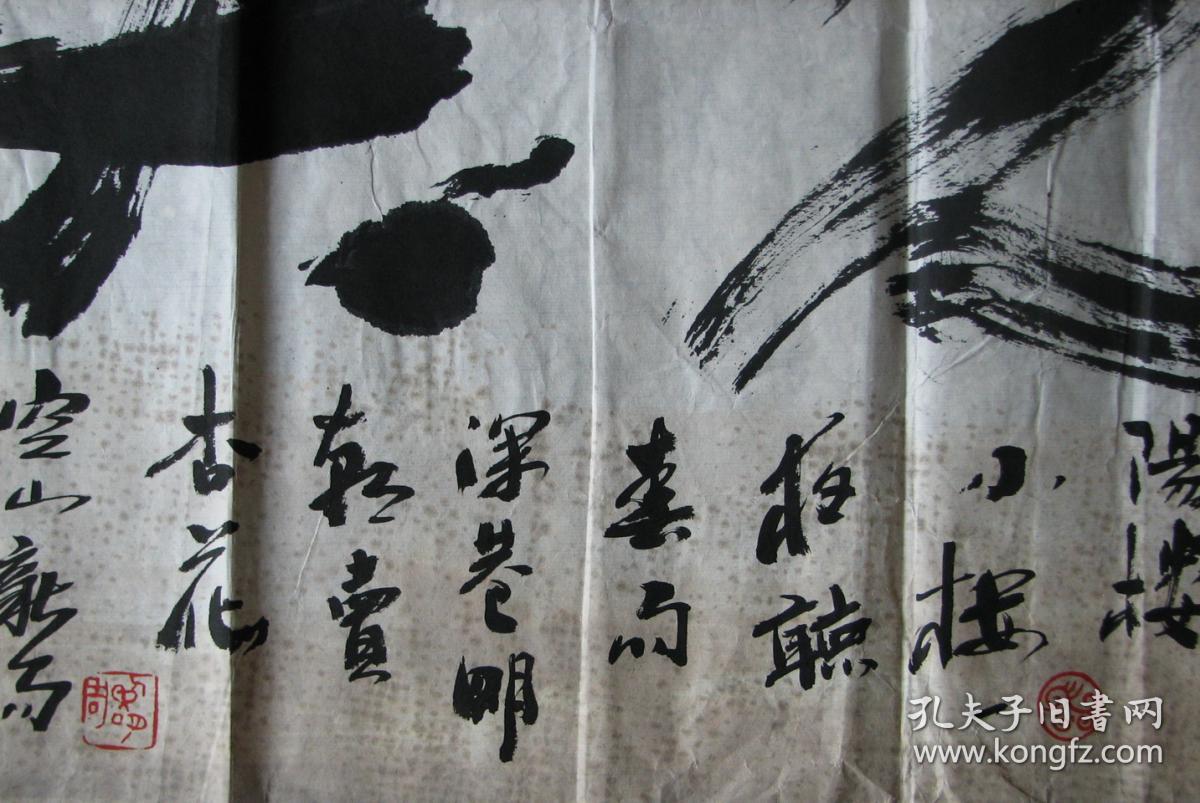 陽樓
小樓一
夜聽
春雨
深巷明
朝賣
杏花
空山新雨
孔夫子旧書网
www.kongfz.com